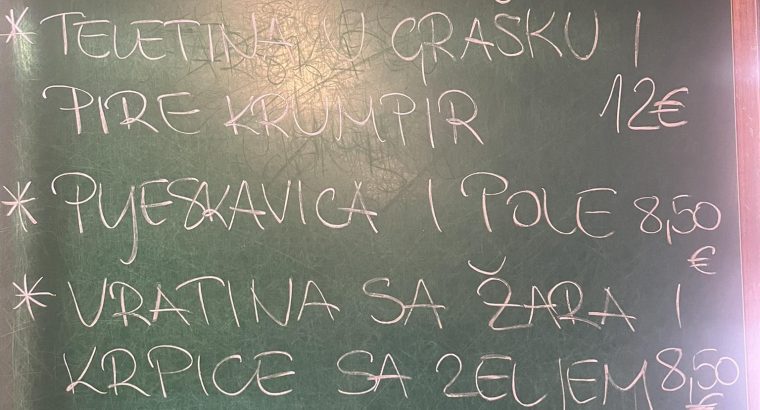 * TELETINA U GRAŠKU I
PIRE KRUMPIR 12€
* PLJESKAVICA I POLE 8,50
€
* VRATINA SA ŽARA I
KRPICE SA ZELJEM 8,50
€